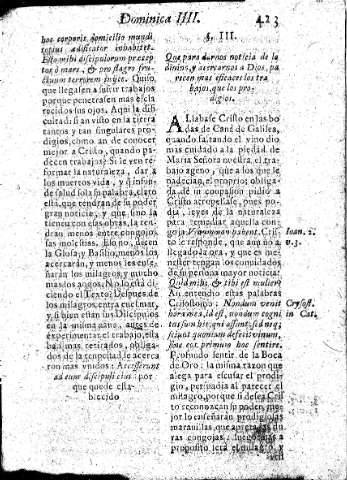 Dominica IIII. 423
hoc corporis domicilio mundi
totius ædificator inhabitet.
Esto mihi discipulorum præcep
tor à mare, & pro flagro flu-
ctuum terrorem inijce. Quiso,
que llegassen a sufrir trabajos
porque penetrassen mas escla
recidos sus ojos. Aqui la difi
cultad: si an visto en la tierra
tantos y tan singulares pro-
digios, como an de conocer
mejor a Cristo, quando pa-
decen trabajos? Si le ven re-
formar la naturaleza, dar a
los muertos vida, y
de salud sola su palabra, claro
està, que tendran de su poder
gran noticia; y que sino la
tienen con essas obras, la ten-
dran menos entre congojas,
sus molestias. Esso no, dicen
la Glosa, y Basilio, menos los
acercarán, y menos les ense-
ñarán los milagros, y mucho
mas los agos. No lo està di-
ciendo el Texto? Despues de
los milagros entra en el mar,
y si bien eran sus Dicipulos
en la misma nave, antes de
experimentar el trabajo, ella
ba mas retirados, obliga-
dos de la tempestad se acerca
ron mas vnidos: Accesserunt
ad eum discipuli eius: por
que quede esta-
blecido
§. III.
Que para darnos noticia de la
divino, y acercarnos a Dios, pa
recen mas eficaces los tra
bajos, que los pro-
digios.
Allabase Cristo en las bo
das de Canà de Galilea,
quando faltando el vino dio
mas cuidado a la piedad de
Maria Señora nuestra, el tra-
bajo ageno, que a los que le
padecian, el proprio; obliga-
da de su compasion pidió a
Cristo atropellase, pues po-
dia, leyes de la naturaleza
para templar aquella con-
goja Vinum non habent. Cris- Ioan. 2.
to le responde, que aun no a v. 3.
llegado la ora, y que es me-
nester tengan los combidados
de su persona mayor noticia:
Quid mihi, & tibi est mulier?
Asi entendio estas palabras
Crisostomo: Nondum venit Crysost.
hora mea, id est, nondum cogni in Cat.
tus sum his, qui assunt, sed neq;
sciunt quoniam defecit vinum,
sine eos primum hoc sentire.
Profundo sentir de la Boca
de Oro: la misma razon que
alega para escusar el prodi-
gio, persuadia al parecer el
milagro, porque si desea Cris
to reconozcan su poder, me-
jor lo enseñarán prodigiosas
maravillas, que apretadas du
ras congojas: luego mas a
proposito sera el milagro, el